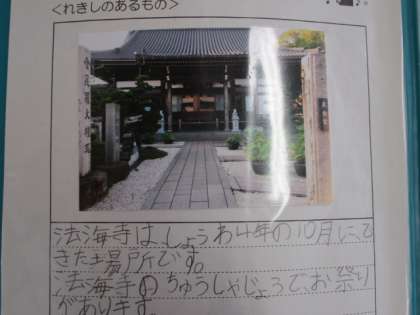 <れきしのあるもの>
法海寺は、しょうわ4年の10月に、で
きた土場所です。
法海寺のちゅうしゃじょうで、お祭り
があります。